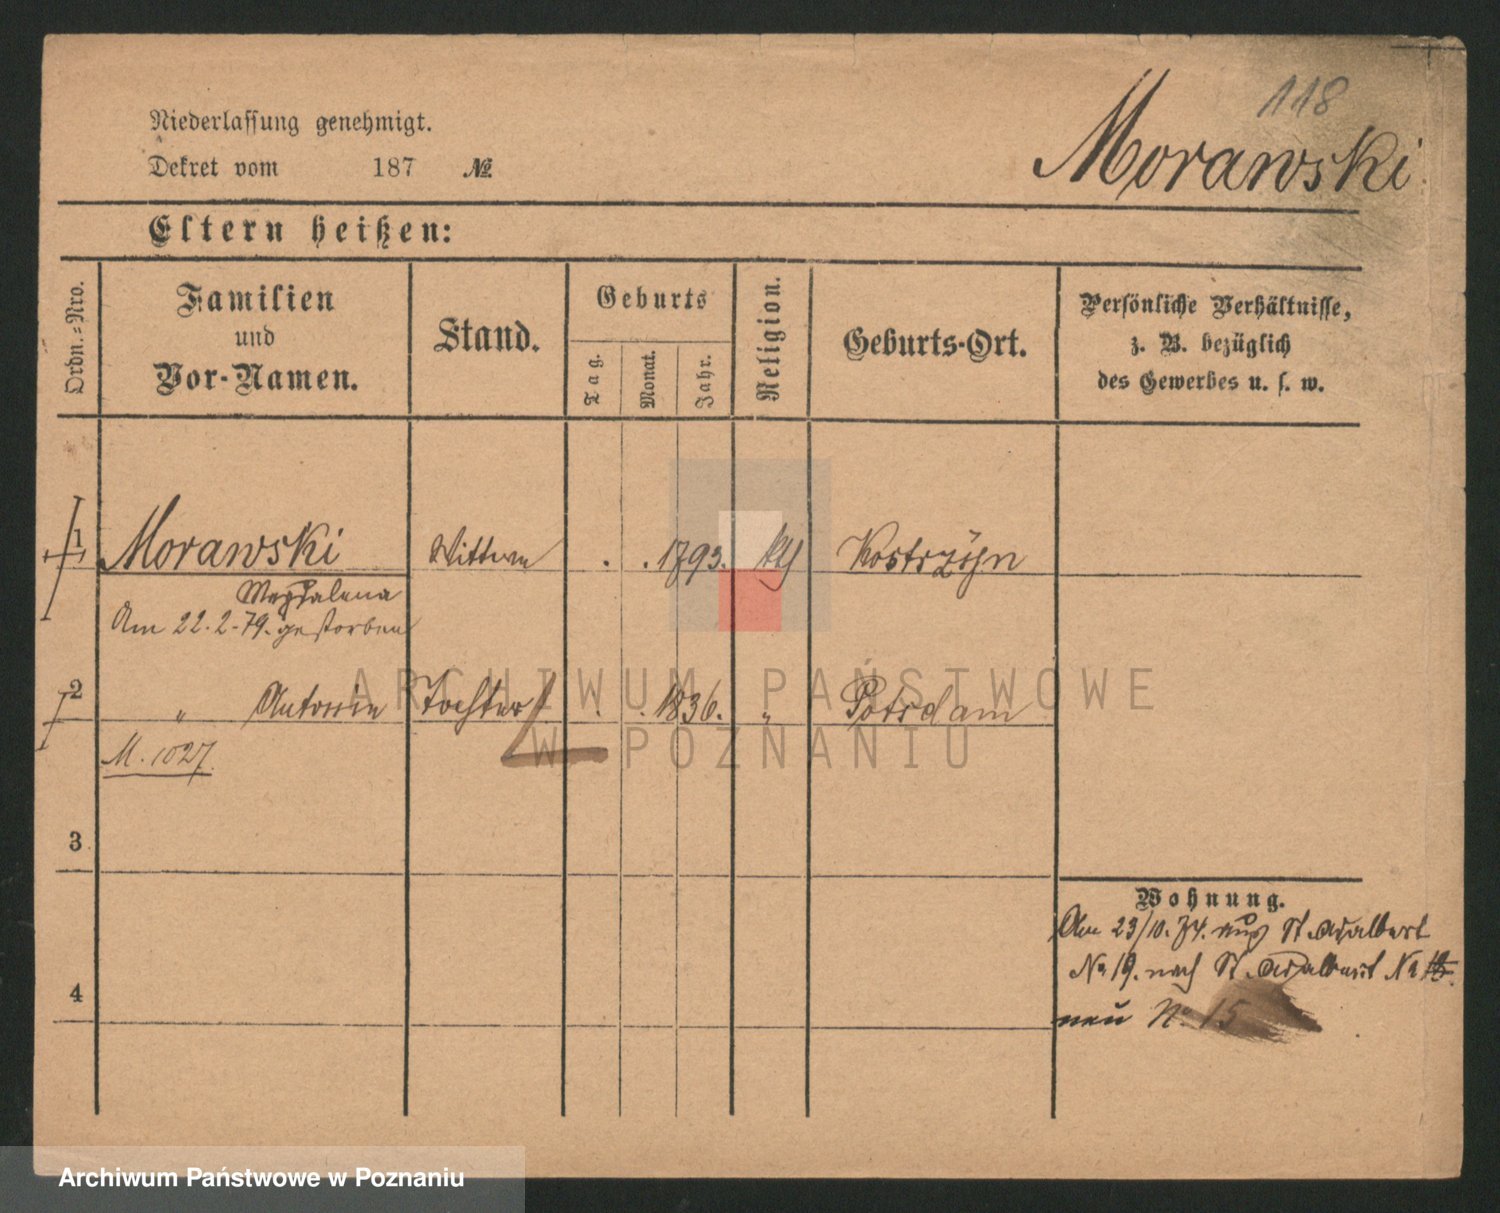 118
Morawski
Niederlassung genehmigt.
Dekret vom 187 №
Eltern heißen:
Ordn.-Nro.
Familien
und
Vor-Namen.
Stand.
Geburts
Tag.
Monat.
Jahr.
Religion.
Geburts-Ort.
Persönliche Verhältnisse,
z. B. bezüglich
des Gewerbes u. s. w.
1 Morawski Wittwe . . 1793. kth
Magdalena
Am 22.2.79. gestorben
2 " Antonie Tochter . . 1836. " Potsdam
M. 1027
3
4
Wohnung.
Am 23/10.74. aus St. Adalbert
No 19. nach St. Adalbert No
neu N. 15
ARCHIWUM PAŃSTWOWE
W POZNANIU
Archiwum Państwowe w Poznaniu